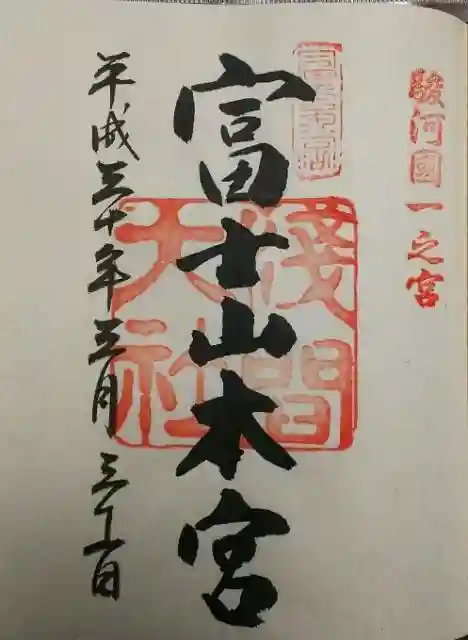 駿河國一之宮
富士山本宮
淺間
大社
平成三十年三月三十一日